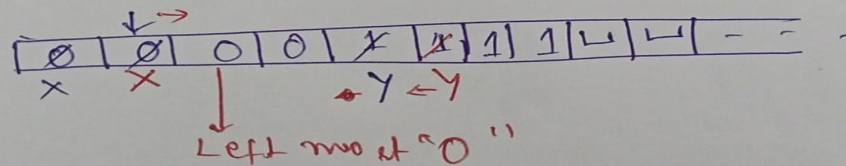 ↓ →
0 0 0 0 1 1 1 1 ⊔ ⊔ - =
X X Y ← Y
Left most "0"